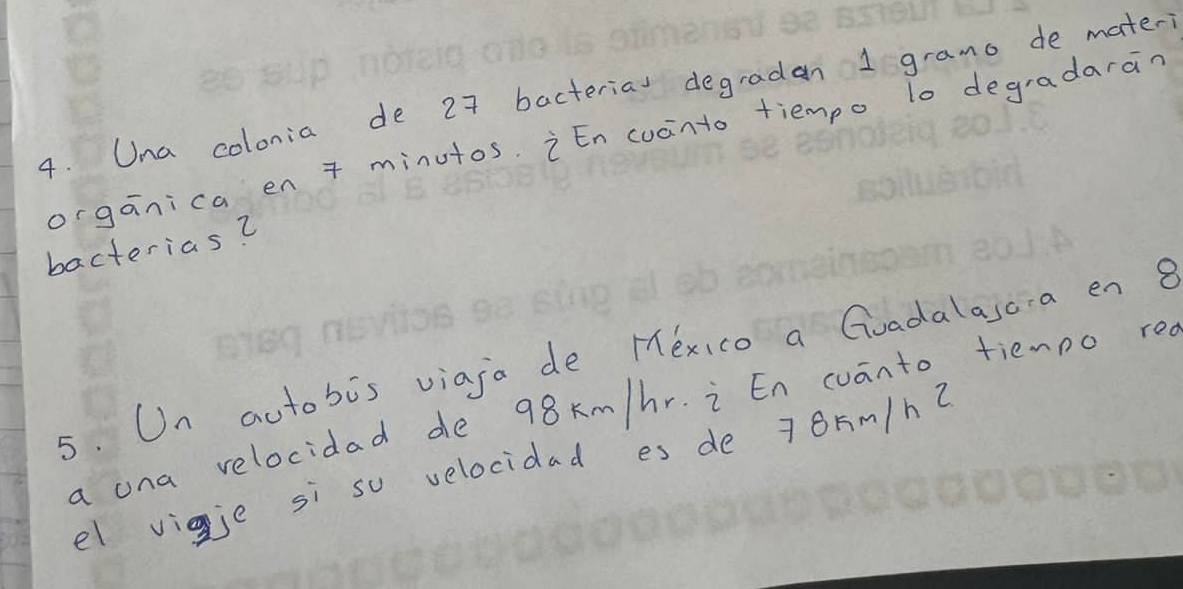 4. Una colonia de 27 bacterias degradan 1 gramo de materi
orgánica en 7 minutos. ¿En cuánto tiempo lo degradarán
bacterias?
5. Un autobús viaja de México a Guadalajara en 8
a una velocidad de 98 Km/hr. ¿En cuánto tiempo rea
el viaje si su velocidad es de 78 Km/h?